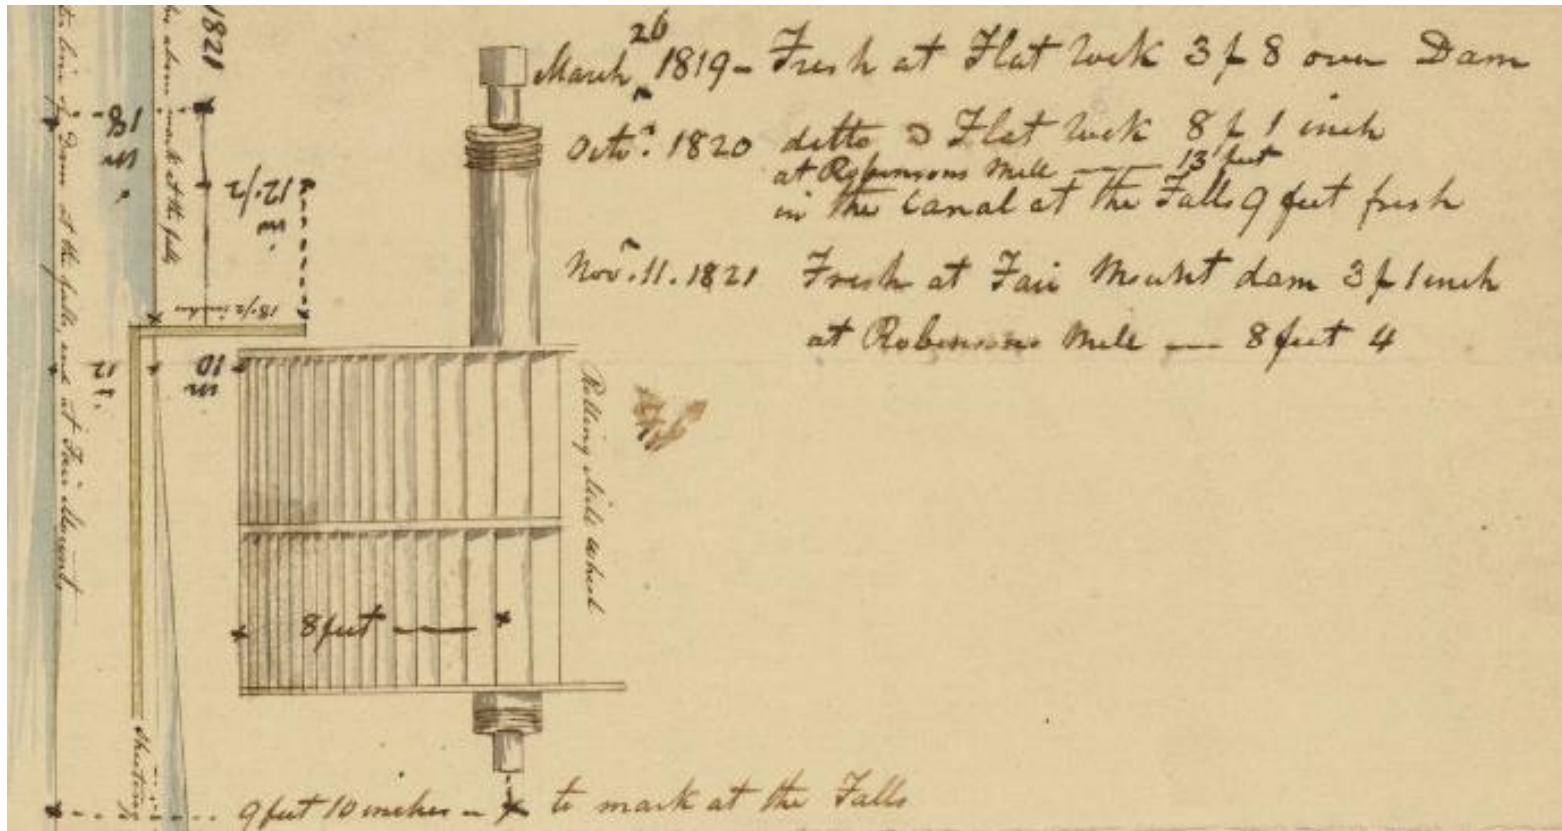 March 26 1819 - Fresh at Flat Rock 3 f 8 over Dam
Octr. 1820 ditto Flat Rock 8 f 1 inch
at Robinsons Mill —— 13 feet
in the Canal at the Falls 9 feet fresh
Novr. 11. 1821 Fresh at Fair Mount dam 3 f 1 inch
at Robinsons Mill — 8 feet 4
Rolling Mill Wheel
8 feet
9 feet 10 inches - to mark at the Falls
1821
mark at the falls
line of Dam at the falls, and at Fair Mount
18 in
12 1/2 in
18 1/2 inches
10 in
12
Sheeting